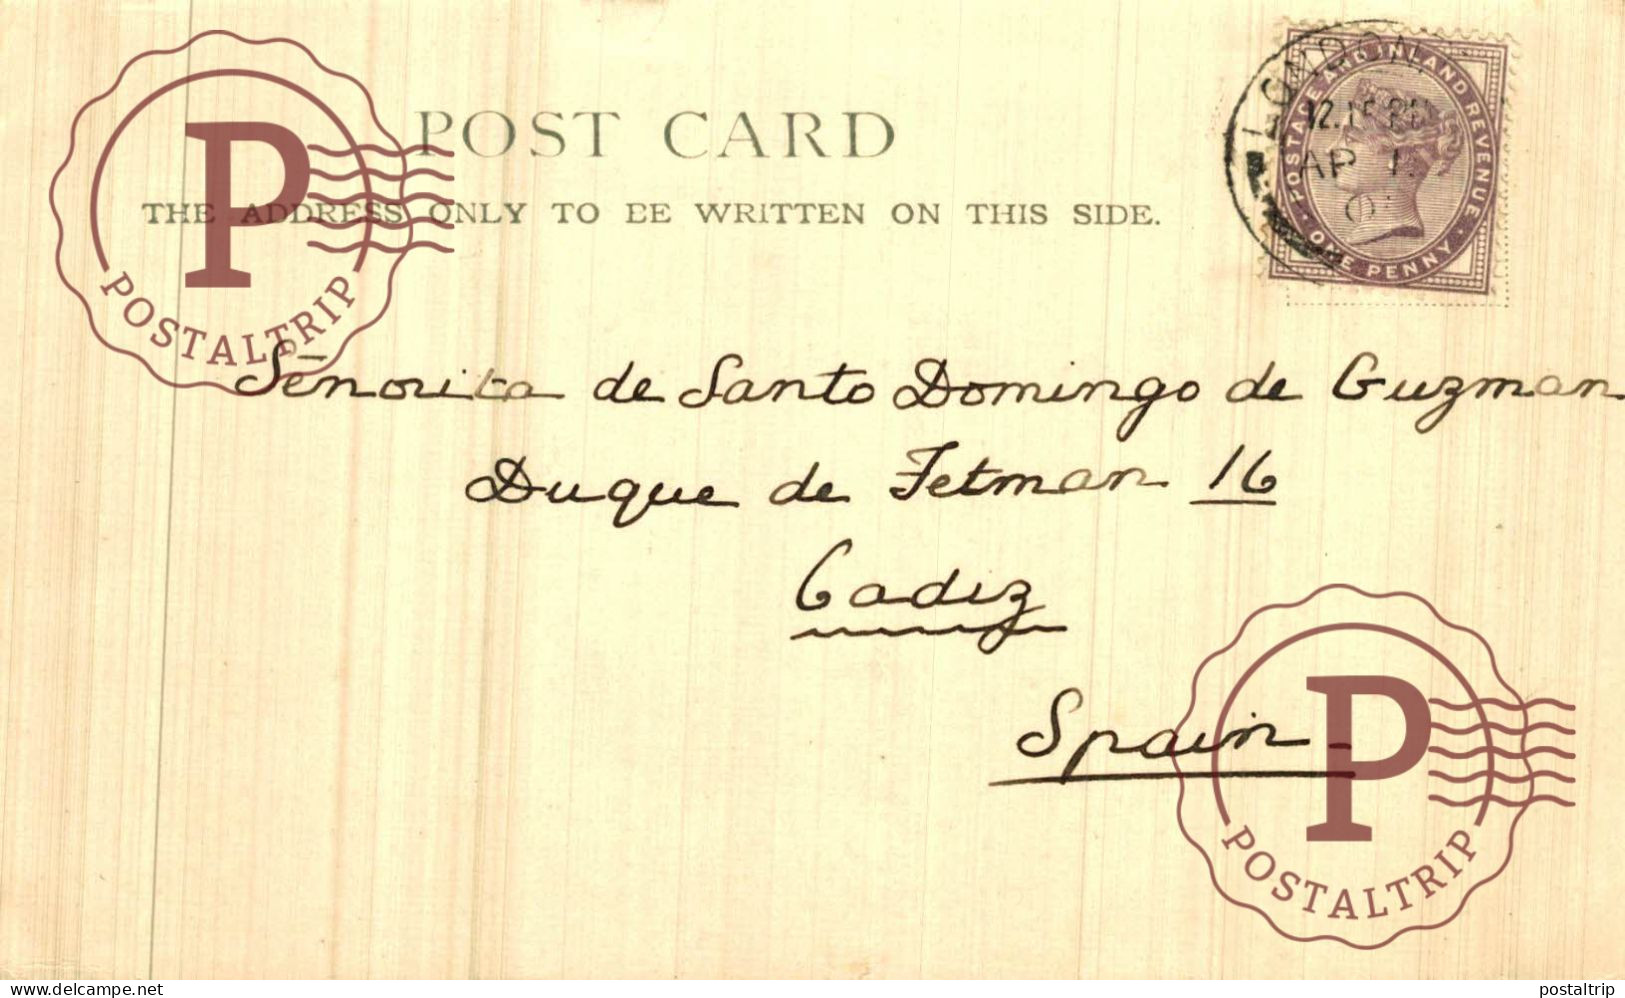 POST CARD
THE ADDRESS ONLY TO BE WRITTEN ON THIS SIDE.
POSTAGE AND INLAND REVENUE
ONE PENNY
LONDON
AP 1
POSTALTRIP
Señorita de Santo Domingo de Guzman
Duque de Tetman 16
Cadiz
Spain
POSTALTRIP
www.delcampe.net
postaltrip